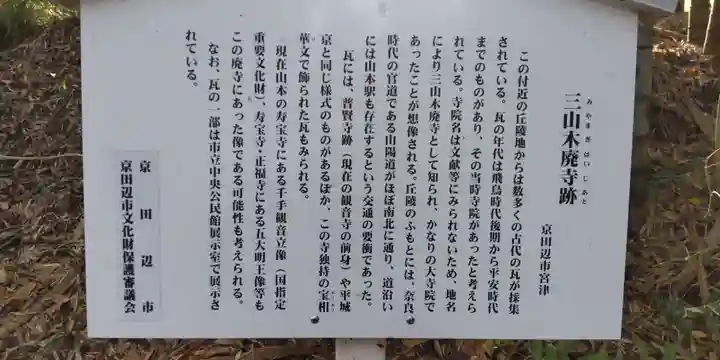 三山木廃寺跡
みやまきはいじあと
京田辺市宮津
この付近の丘陵地からは数多くの古代の瓦が採集
されている。瓦の年代は飛鳥時代後期から平安時代
までのものがあり、その当時寺院があったと考えら
れている。寺院名は文献等にみられないため、地名
により三山木廃寺として知られ、かなりの大寺院で
あったことが想像される。丘陵のふもとには、奈良
時代の官道である山陽道がほぼ南北に通り、道沿い
には山本駅も存在するという交通の要衝であった。
瓦には、普賢寺跡（現在の観音寺の前身）や平城
京と同じ様式のものがあるほか、この寺独特の宝相
華文で飾られた瓦もみられる。
現在山本の寿宝寺にある千手観音立像（国指定
重要文化財）、寿宝寺・正福寺にある五大明王像等も
この廃寺にあった像である可能性も考えられる。
なお、瓦の一部は市立中央公民館展示室で展示さ
れている。
京田辺市
京田辺市文化財保護審議会